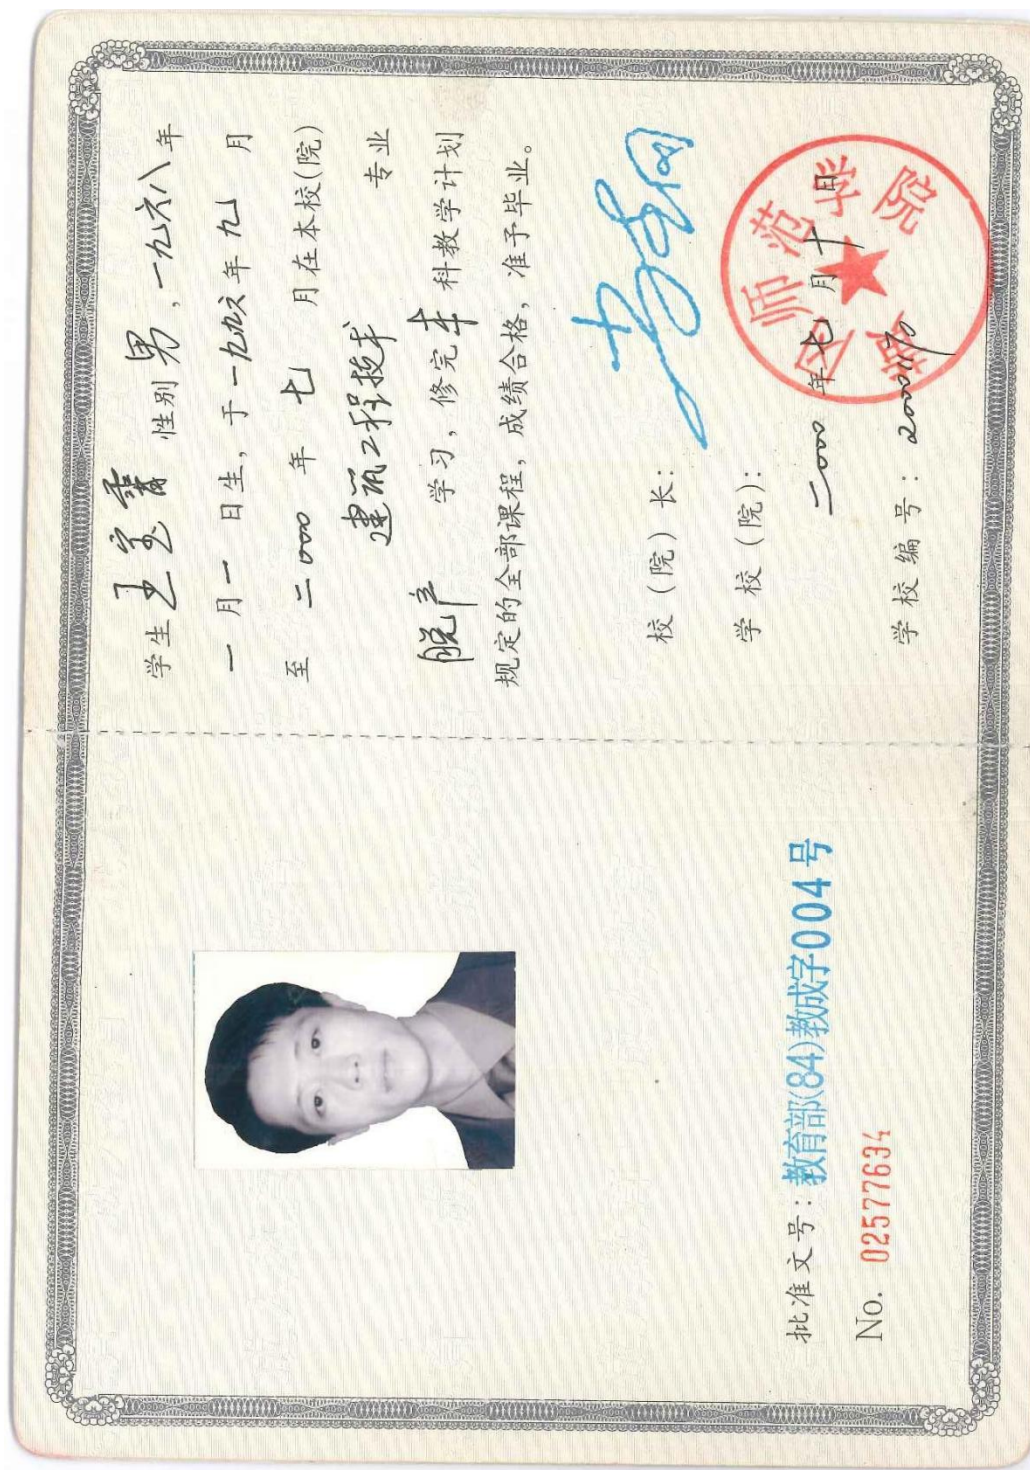 学生 王宝霄 性别 男，一九六八年
一月一日生，于一九九六年九月
至二〇〇〇年七月在本校(院)
建筑工程技术 专业
脱产 学习，修完本科教学计划
规定的全部课程，成绩合格，准予毕业。
校(院)长：
学校(院)：
师范学院
二〇〇〇年七月十日
学校编号：
批准文号：教育部(84)教成字004号
No. 02577634